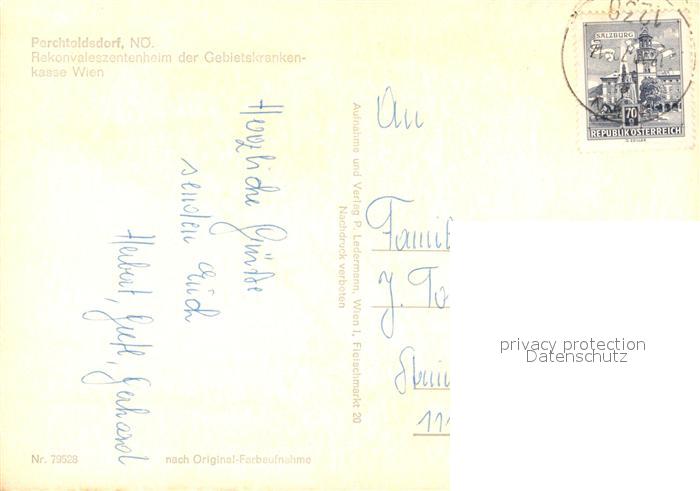 Perchtoldsdorf, NÖ.
Rekonvaleszentenheim der Gebietskranken-
kasse Wien
Herzliche Grüße
senden Euch
Herbert, Gretl, Gerhard
Nr. 79528
nach Original-Farbaufnahme
Aufnahme und Verlag P. Ledermann, Wien I, Fleischmarkt 20
Nachdruck verboten
SALZBURG
70
REPUBLIK ÖSTERREICH
An
Famil
J. To
11
privacy protection
Datenschutz